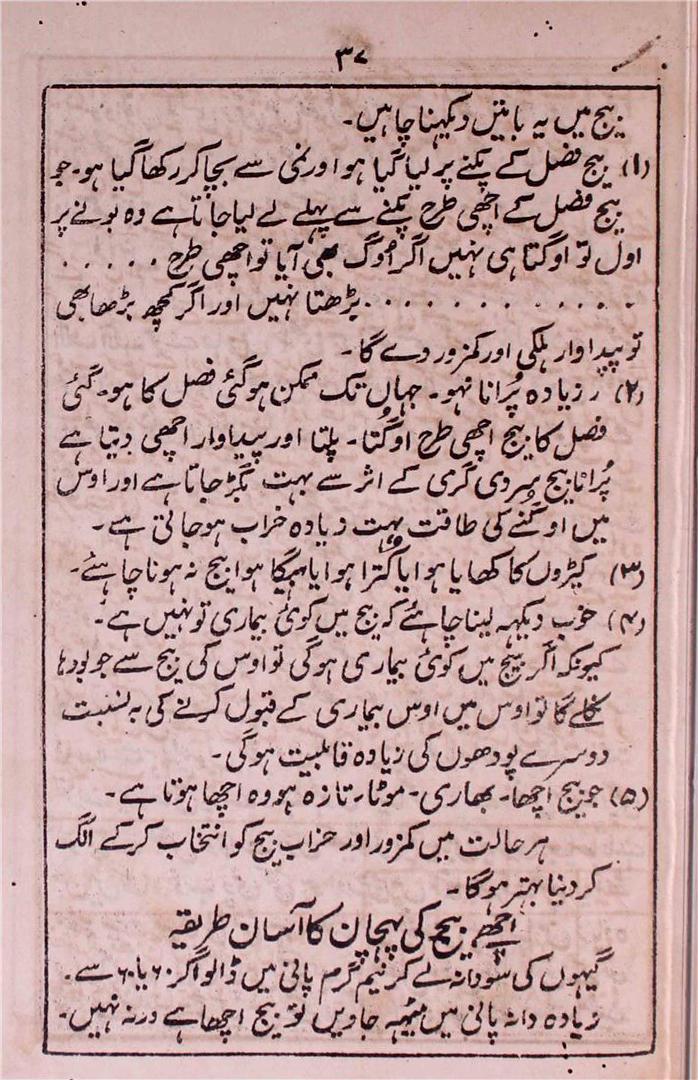 ۳۷
بیج میں یہ باتیں دیکہنا چاہیں۔
(۱) بیج فصل کے پکنے پر لیا گیا ہو اور نمی سے بچا کر رکھا گیا ہو۔ جو
بیج فصل کے اچھی طرح پکنے سے پہلے لے لیا جاتا ہے وہ بونے پر
اول تو اوگتا ہی نہیں اگر اُوگ بھی آیا تو اچھی طرح . . . . .
. . . . . . . . . . . . بڑھتا نہیں اور اگر کچھ بڑھا بھی
تو پیداوار ہلکی اور کمزور دے گا۔
(۲) زیادہ پُرانا نہو۔ جہاں تک ممکن ہو گئی فصل کا ہو۔ گئی
فصل کا بیج اچھی طرح اوگتا۔ پلتا اور پیداوار اچھی دیتا ہے
پُرانا بیج سردی گرمی کے اثر سے بہت بگڑ جاتا ہے اور اوس
میں اوگنے کی طاقت بہت زیادہ خراب ہوجاتی ہے۔
(۳) کیڑوں کا کھایا ہوا یا کُترا ہوا یا بھیگا ہوا بیج نہ ہونا چاہئے۔
(۴) خوب دیکہہ لینا چاہئے کہ بیج میں کوئی بیماری تو نہیں ہے۔
کیونکہ اگر بیج میں کوئی بیماری ہوگی تو اوس کی بیج سے جو پودہا
نکلے گا تو اوس میں اوس بیماری کے قبول کرنے کی بہ نسبت
دوسرے پودھوں کی زیادہ قابلیت ہوگی۔
(۵) جو بیج اچھا۔ بھاری۔ موٹا۔ تازہ ہو وہ اچھا ہوتا ہے۔
ہر حالت میں کمزور اور خراب بیج کو انتخاب کرکے الگ
کردینا بہتر ہوگا۔
اچھے بیج کی پہچان کا آسان طریقہ
گیہوں کی سو دانہ لے کر نیم گرم پانی میں ڈالو اگر ۶۰ یا ۷۰ سے۔
زیادہ دانہ پانی میں بیٹھہ جاویں تو بیج اچھا ہے ورنہ نہیں۔